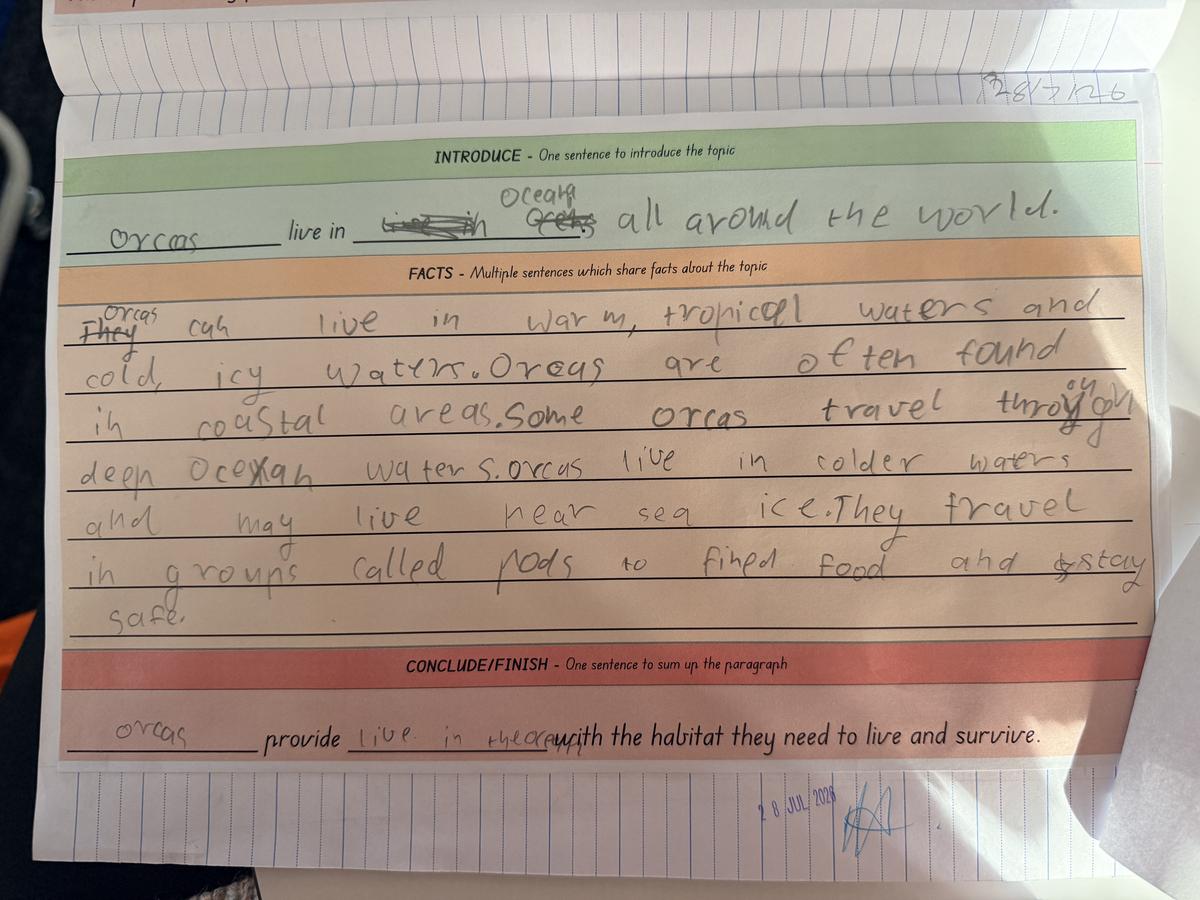 28/7/26
INTRODUCE - One sentence to introduce the topic
Ocean
orcas live in all around the world.
FACTS - Multiple sentences which share facts about the topic
Orcas
They can live in warm, tropical waters and
cold, icy waters. Orcas are often found
in coastal areas. Some orcas travel through
deep Ocean waters. orcas live in colder waters
and may live near sea ice. They travel
in groups called pods to fined food and stay
safe.
CONCLUDE/FINISH - One sentence to sum up the paragraph
orcas provide live in the with the habitat they need to live and survive.
28 JUL 2026